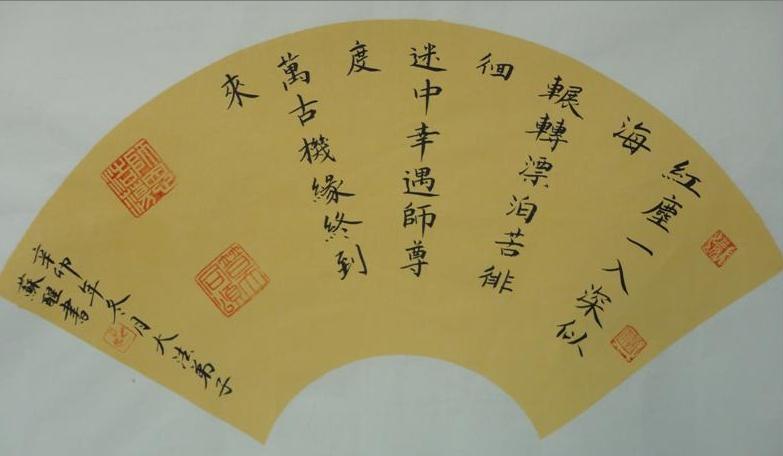 紅塵一入深似
海
輾轉漂泊苦徘
徊
迷中幸遇師尊
度
萬古機緣終到
來
辛卯年冬月大法弟子
蘇醒書